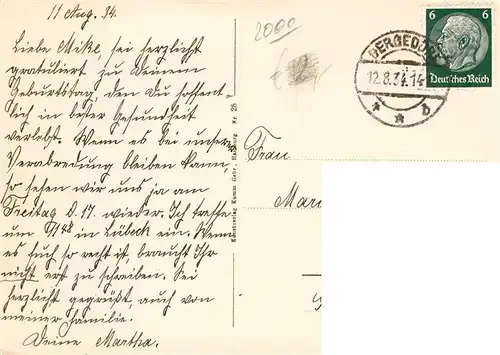 11 Aug. 34.
Liebe Mike, sei herzlichst
gratuliert zu Deinem
Geburtstag, den Du hoffent-
lich in bester Gesundheit
verlebst. Wenn es bei unserer
Verabredung bleiben kann
so sehen wir uns ja am
Freitag d. 17. wieder. Ich treffe
um 9 in Lübeck ein. Wenn
es Euch so recht ist braucht Ihr
nicht erst zu schreiben. Sei
herzlichst gegrüßt, auch von
meiner Familie.
Deine Martha.
Nr. 28
2000
BERGEDORF
12.8.34.
b
6 6
Deutsches Reich
Frau
Mari